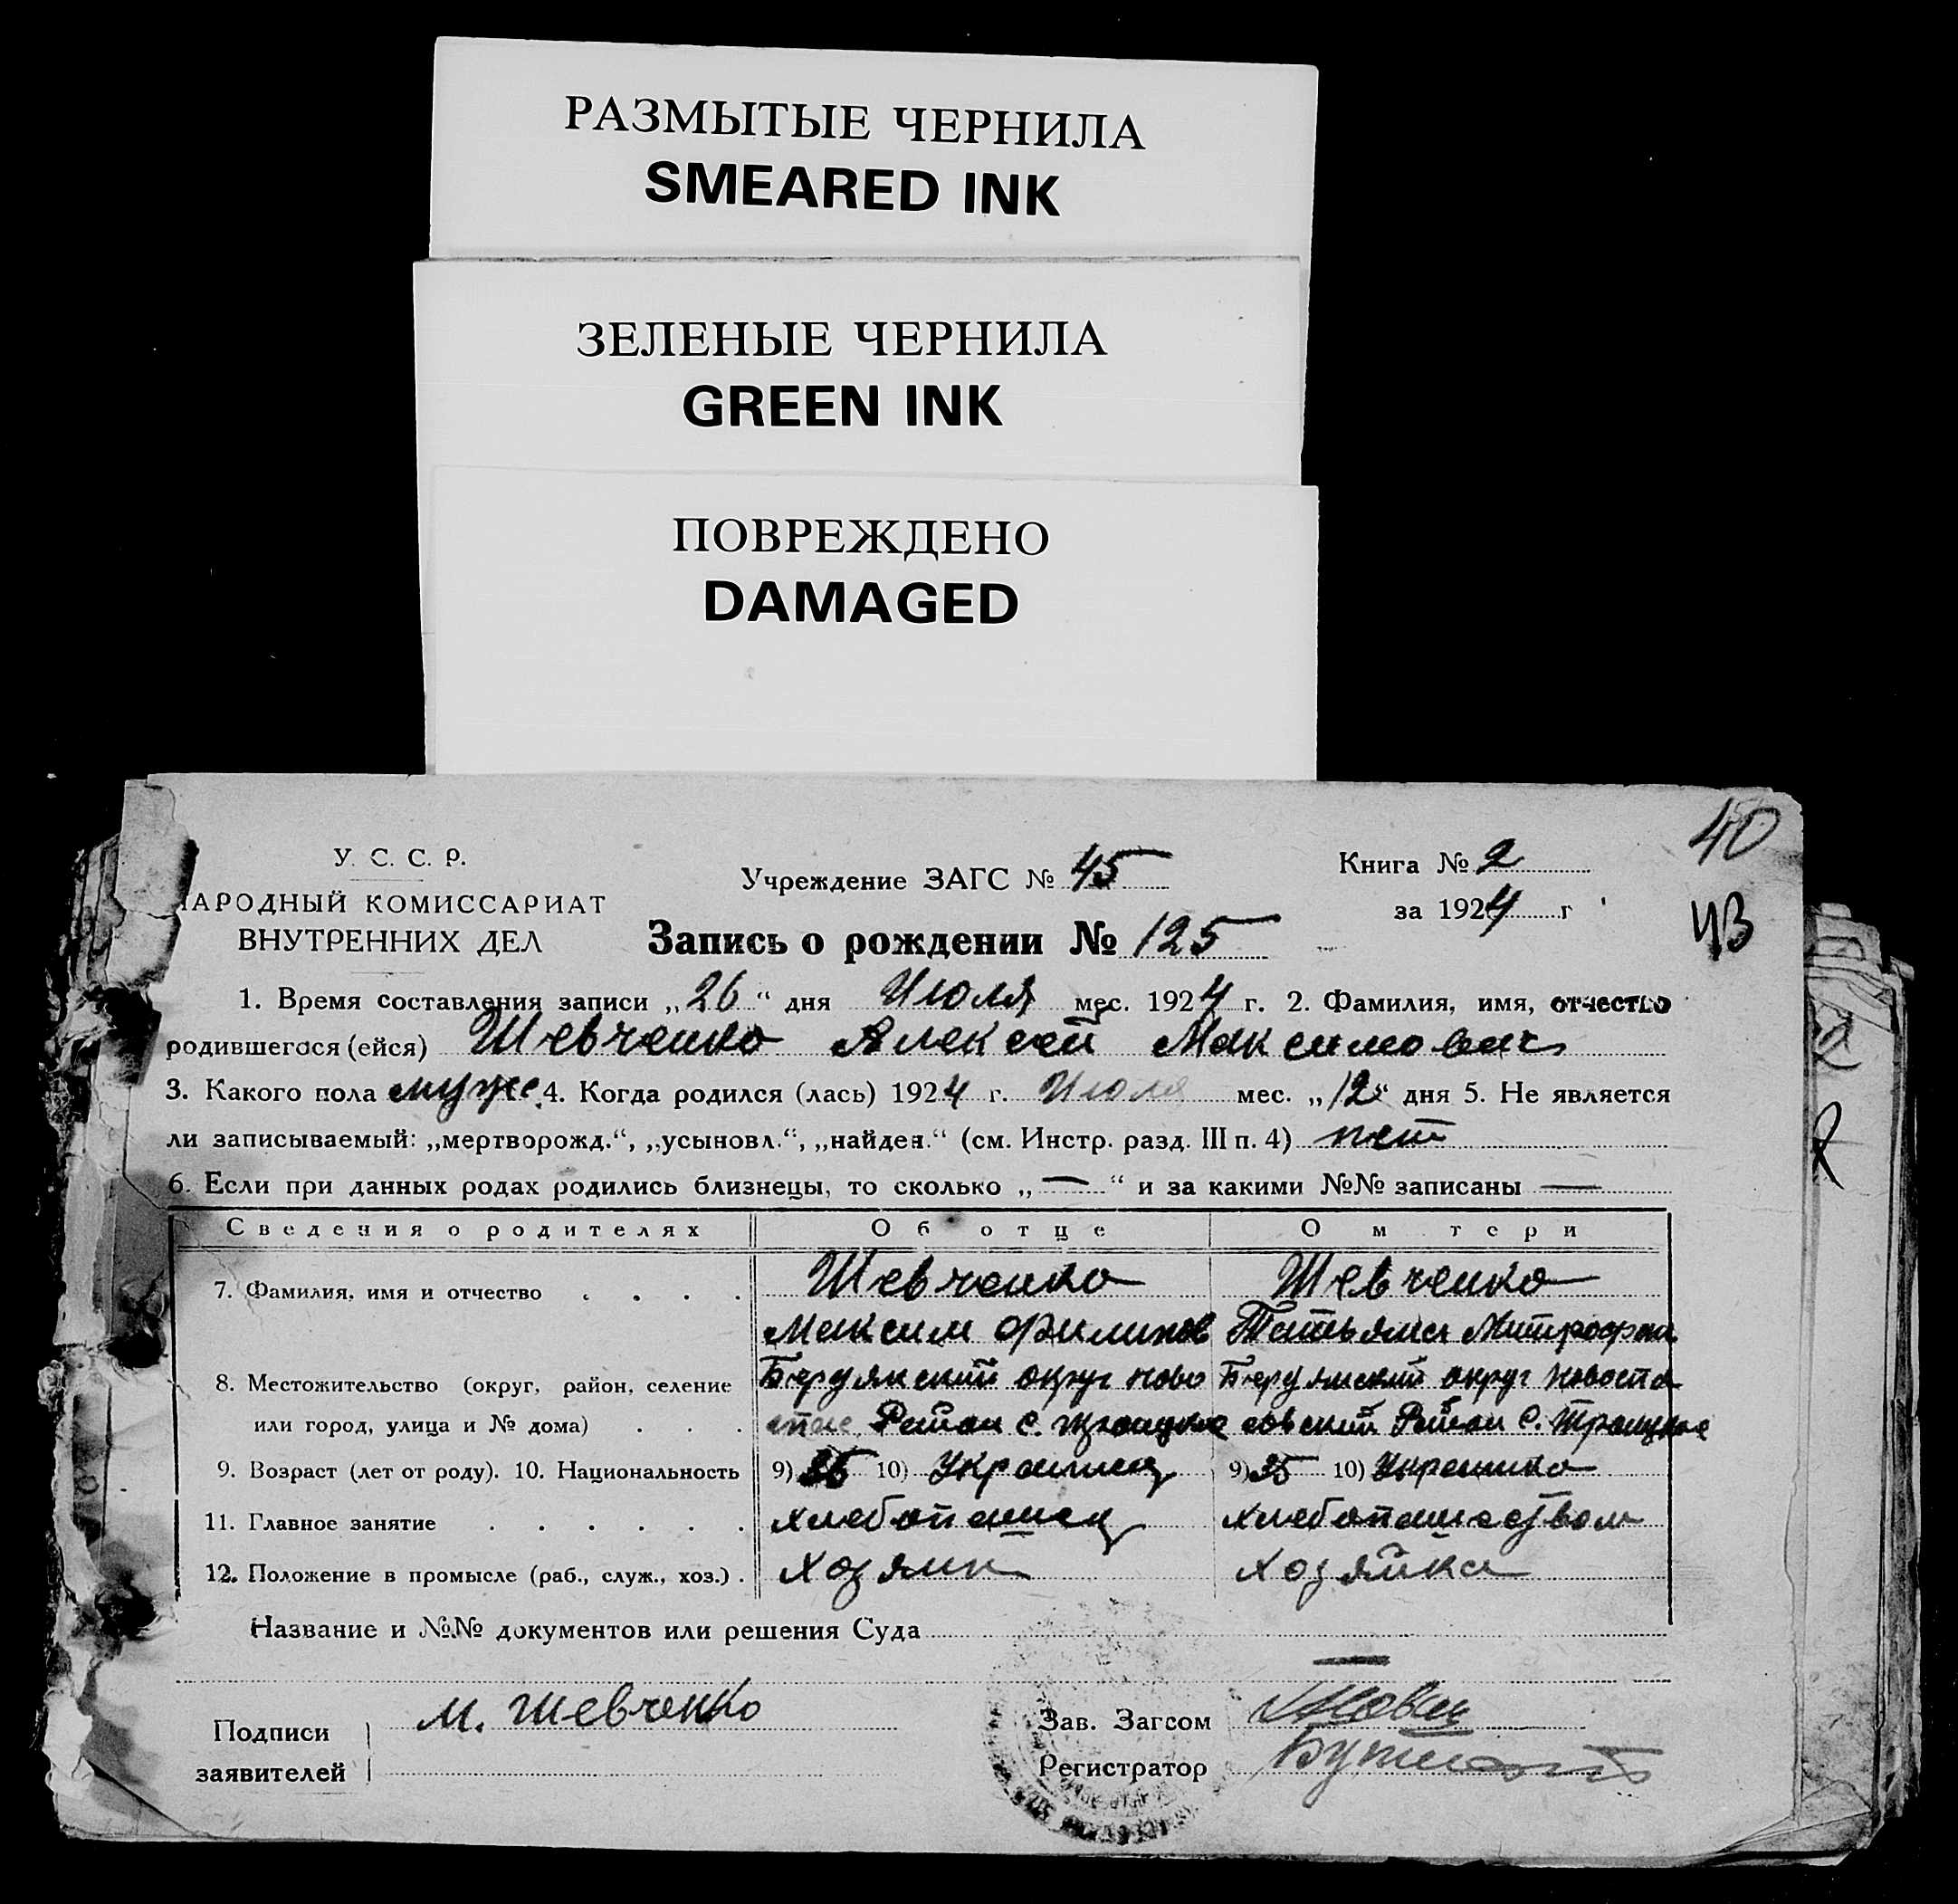 РАЗМЫТЫЕ ЧЕРНИЛА
SMEARED INK
ЗЕЛЕНЫЕ ЧЕРНИЛА
GREEN INK
ПОВРЕЖДЕНО
DAMAGED
40
У. С. С. Р.
Учреждение ЗАГС № 45
Книга № 2
АРОДНЫЙ КОМИССАРИАТ
за 1924 г
43
ВНУТРЕННИХ ДЕЛ
Запись о рождении № 125
1. Время составления записи „26“ дня Июля мес. 1924 г. 2. Фамилия, имя, отчество
родившегося (ейся) Шевченко Алексей Максимович
3. Какого пола муже 4. Когда родился (лась) 1924 г. Июля мес. „12“ дня 5. Не является
ли записываемый: „мертворожд.“, „усыновл.“, „найден.“ (см. Инстр. разд. III п. 4) нет
6. Если при данных родах родились близнецы, то сколько „—“ и за какими №№ записаны —
Сведения о родителях Об отце О м тери
7. Фамилия, имя и отчество . . . . Шевченко Шевченко
Максим Филипов Татьяна Митрофна
8. Местожительство (округ, район, селение Бердянский округ ново Бердянский округ Новоспа
или город, улица и № дома) . . . спас Район с. Троицкое совский Район с. Троицкое
9. Возраст (лет от роду). 10. Национальность 9) 36 10) Украинец 9) 35 10) Украинка
11. Главное занятие . . . . . . хлебопашец хлебопашеством
12. Положение в промысле (раб., служ., хоз.) . хозяин хозяйка
Название и №№ документов или решения Суда —
Подписи
заявителей
М. Шевченко
Зав. Загсом
Регистратор